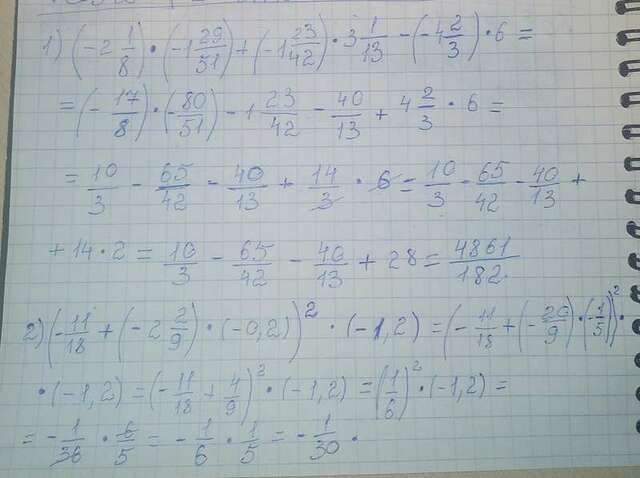 1) (-2 1/8) · (-1 29/51) + (-1 23/42) · 3 1/13 - (-4 2/3) · 6 =
= (- 17/8) · (80/51) - 1 23/42 - 40/13 + 4 2/3 · 6 =
= 10/3 - 65/42 - 40/13 + 14/3 · 6 = 10/3 - 65/42 - 40/13 +
+ 14 · 2 = 10/3 - 65/42 - 40/13 + 28 = 4861/182.
2) (-11/18 + (-2 2/9) · (-0,2))² · (-1,2) = (- 11/18 + (- 20/9) · (-1/5))² ·
· (-1,2) = (- 11/18 + 4/9)² · (-1,2) = (1/6)² · (-1,2) =
= - 1/36 · 6/5 = - 1/6 · 1/5 = - 1/30 .